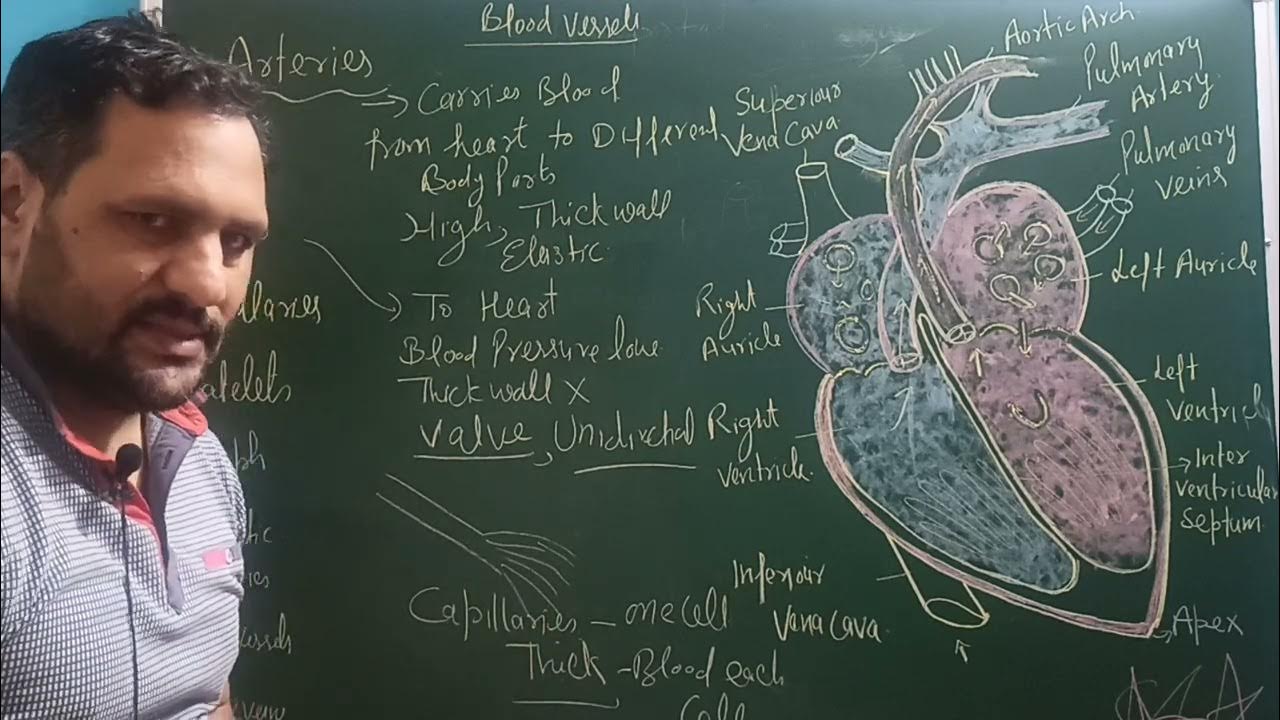 Blood vessels
Arteries
Carries Blood
from heart to Different
Body Parts
High, Thick wall
Elastic
To Heart
Blood Pressure low
Thick wall X
Valve, Unidirchal
Capillaries - one cell
Thick - Blood each
Cell
Aortic Arch
Pulmonary
Artery
Superiour
Vena Cava
Pulmonary
veins
Left Auricle
Right
Auricle
Left
ventricle
Right
ventricle
Inter
ventricular
Septum
Inferiour
Vena cava
Apex